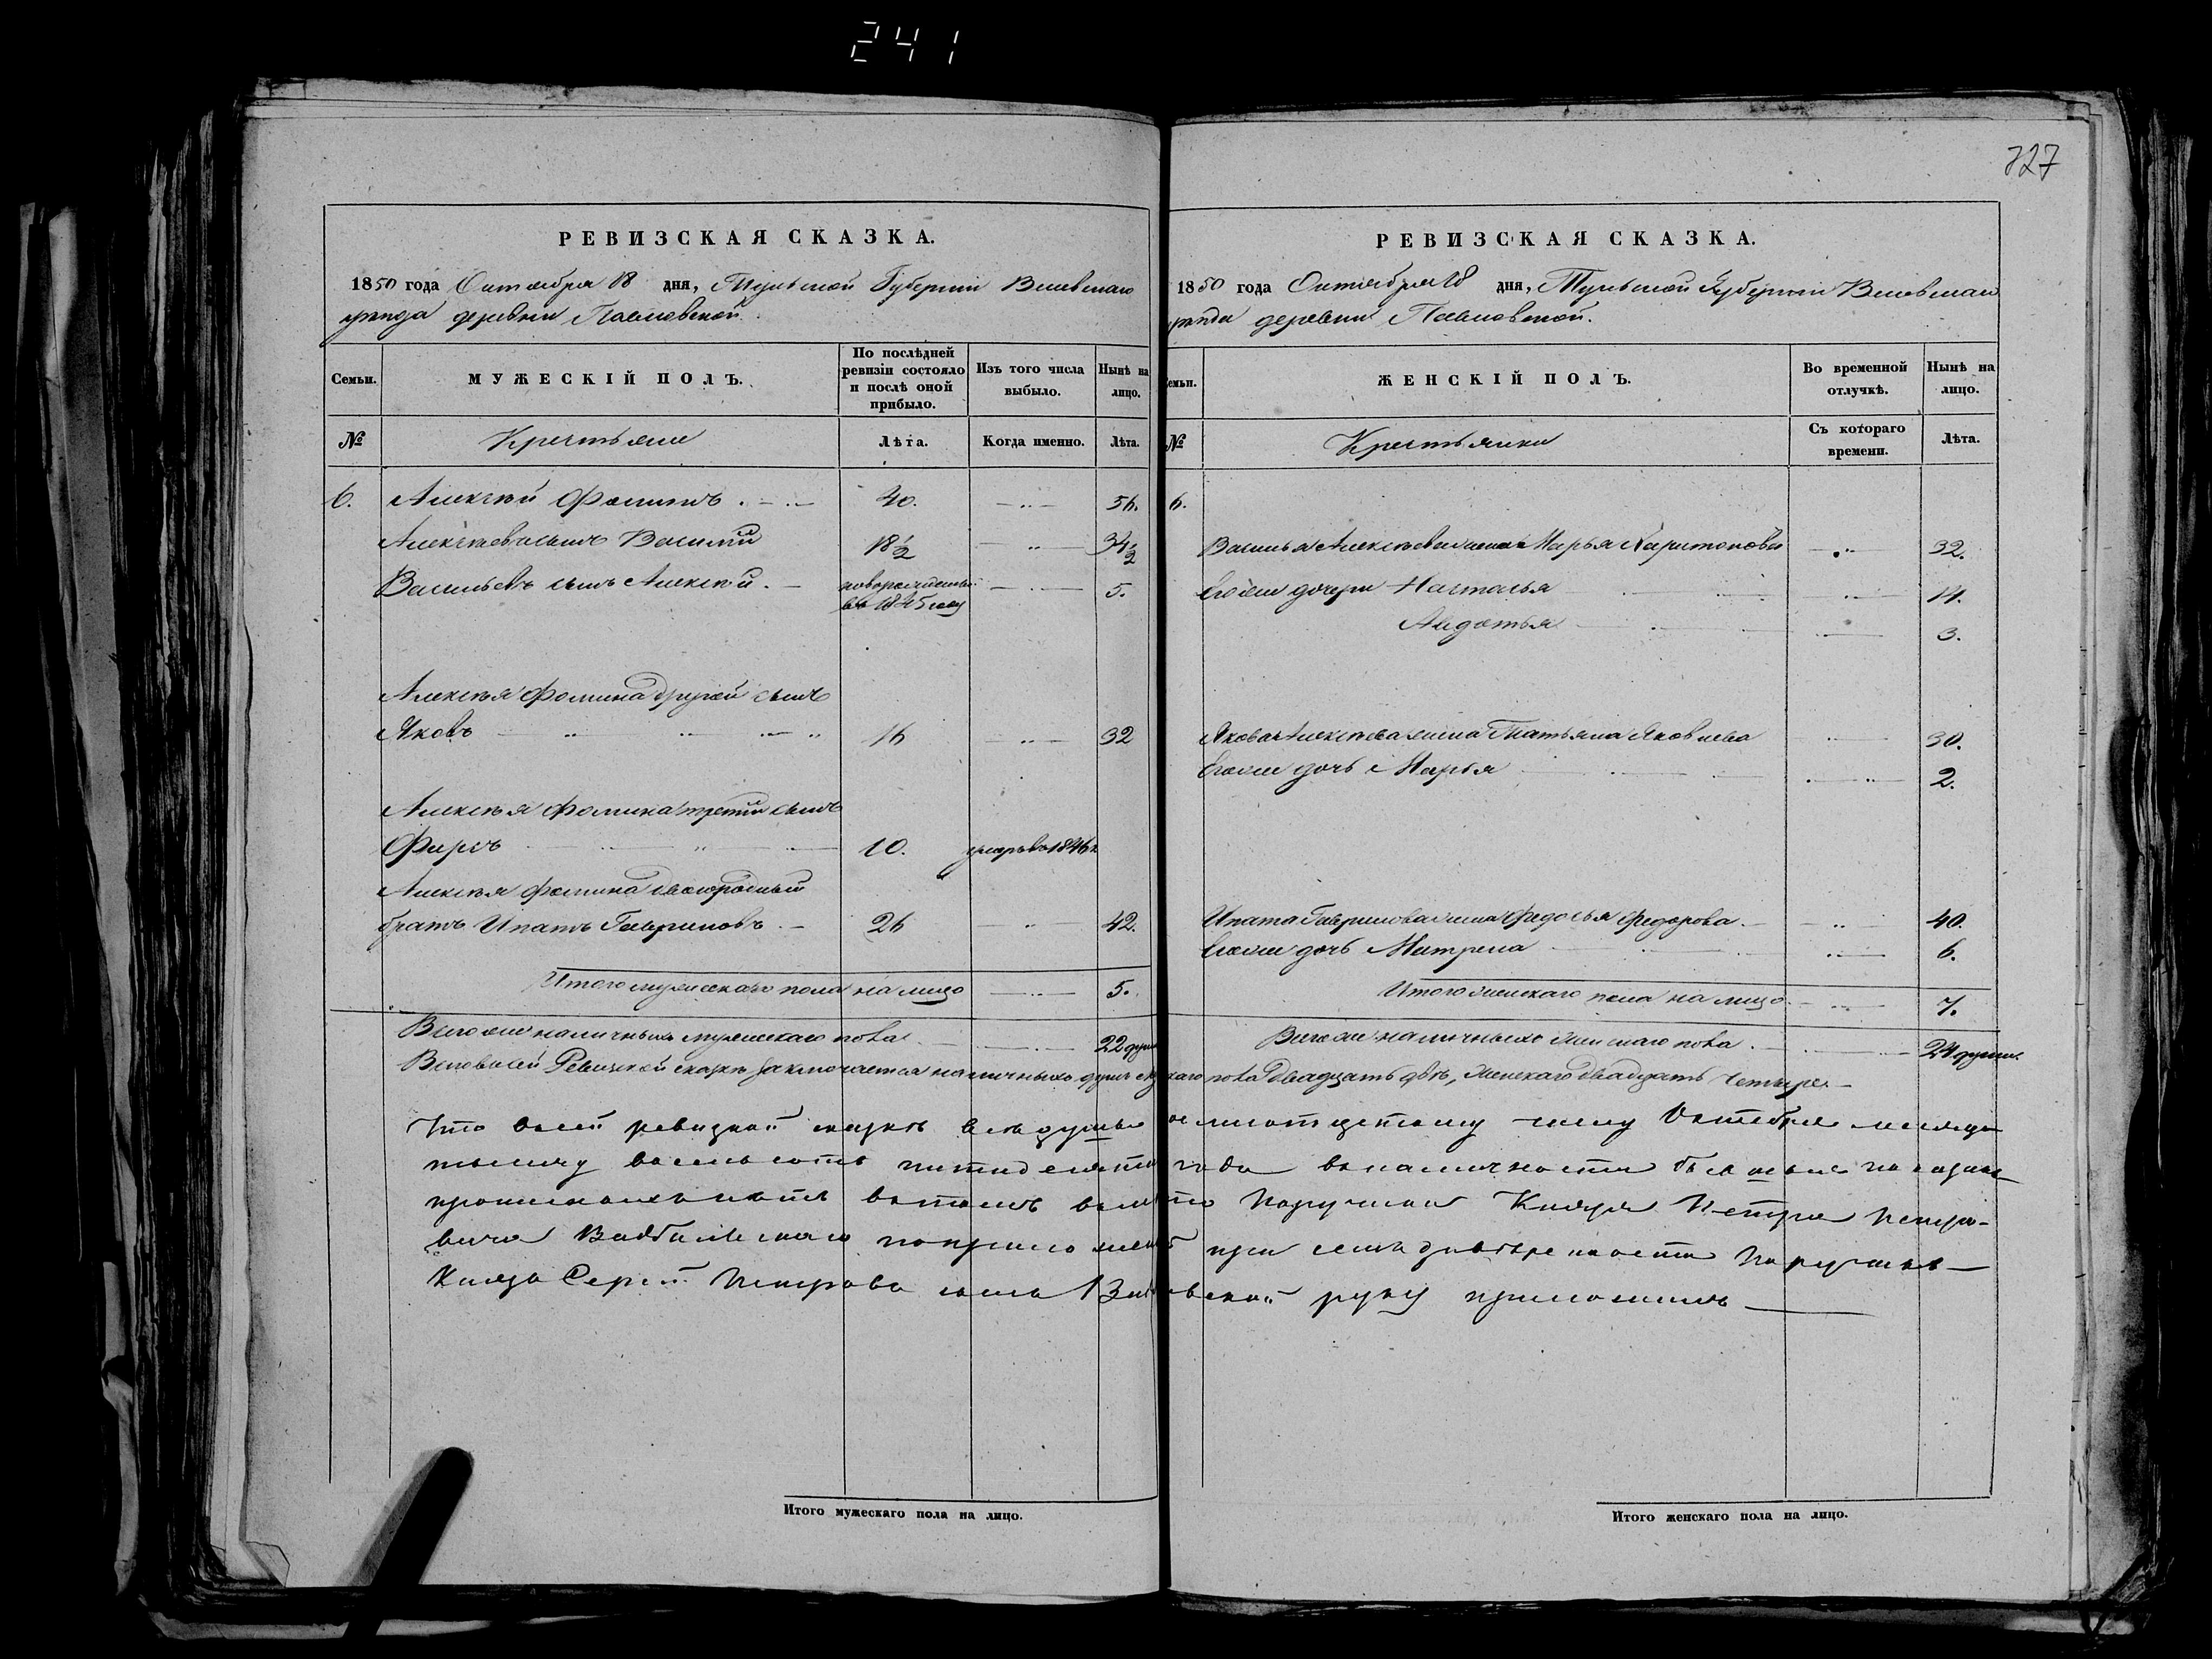 241
727
РЕВИЗСКАЯ СКАЗКА.
1850 года Октября 18 дня, Тульской Губерніи Белевскаго
уѣзда деревни Павловской.
Семьи.
МУЖЕСКІЙ ПОЛЪ.
По послѣдней ревизіи состояло и послѣ оной прибыло.
Изъ того числа выбыло.
Нынѣ на лицо.
№
Крестьяне
Лѣта.
Когда именно.
Лѣта.
6. Алексѣй Фоминъ 40. 56.
Алексѣевъ сынъ Василій 18½ 34½
Васильевъ сынъ Алексѣй новорожденный 5.
въ 1845 году
Алексѣя Фомина другой сынъ
Яковъ 16 32
Алексѣя Фомина третій сынъ
Фирсъ 10. умеръ въ 1846 г.
Алексѣя Фомина двоюродный
братъ Ипатъ Гавриловъ 26 42.
Итого мужескаго пола на лицо 5.
Всего же наличныхъ мужескаго пола 22 души
РЕВИЗСКАЯ СКАЗКА.
1850 года Октября 18 дня, Тульской Губерніи Белевскаго
уѣзда деревни Павловской.
Семьи.
ЖЕНСКІЙ ПОЛЪ.
Во временной отлучкѣ.
Нынѣ на лицо.
№
Крестьянки
Съ котораго времени.
Лѣта.
6.
Василья Алексѣева жена Марья Харитонова 32.
Его же дочери Настасья 14.
Авдотья 3.
Якова Алексѣева жена Татьяна Яковлева 30.
Его же дочь Марья 2.
Ипата Гаврилова жена Федосья Федорова 40.
Его же дочь Матрена 6.
Итого женскаго пола на лицо 7.
Всего же наличныхъ женскаго пола 24 души.
Въ сей Ревизской сказкѣ заключается наличныхъ душъ мужескаго пола двадцать двѣ, женскаго двадцать четыре
Что въ сей ревизкой сказкѣ числу Октября месяца
тысячу восемь сотъ пятидесятого года
Поручика Князя Петра Петро-
вича Вадбольскаго
Князь Сергей Петровъ сынъ Вадбольской руку приложилъ
Итого мужескаго пола на лицо.
Итого женскаго пола на лицо.